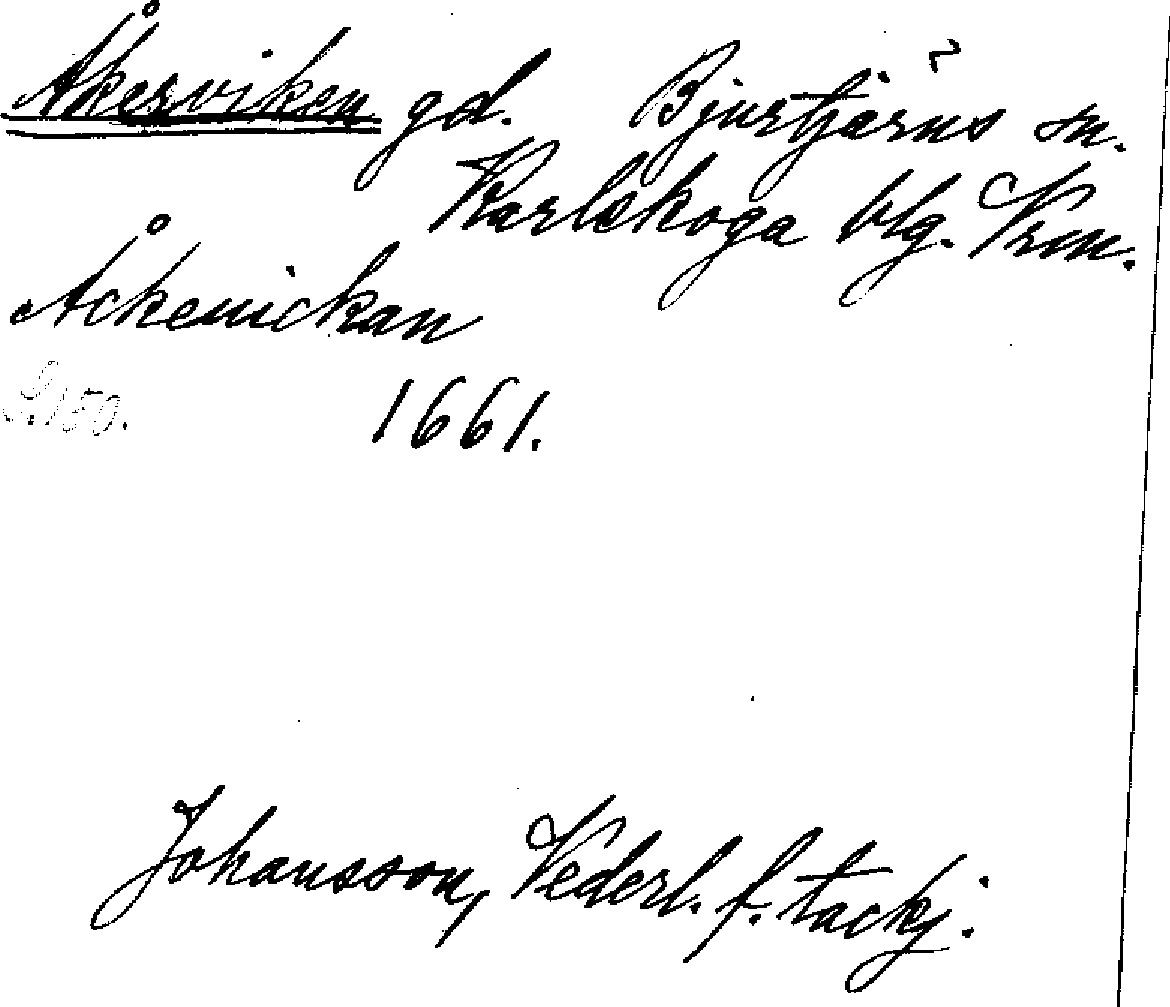 Åkersviken gd. Bjurtjärns sn.
Karlskoga blg. Vrm.
Åckeuickan
S. 150.
1661.
Johansson, Vederl. f. tackj.